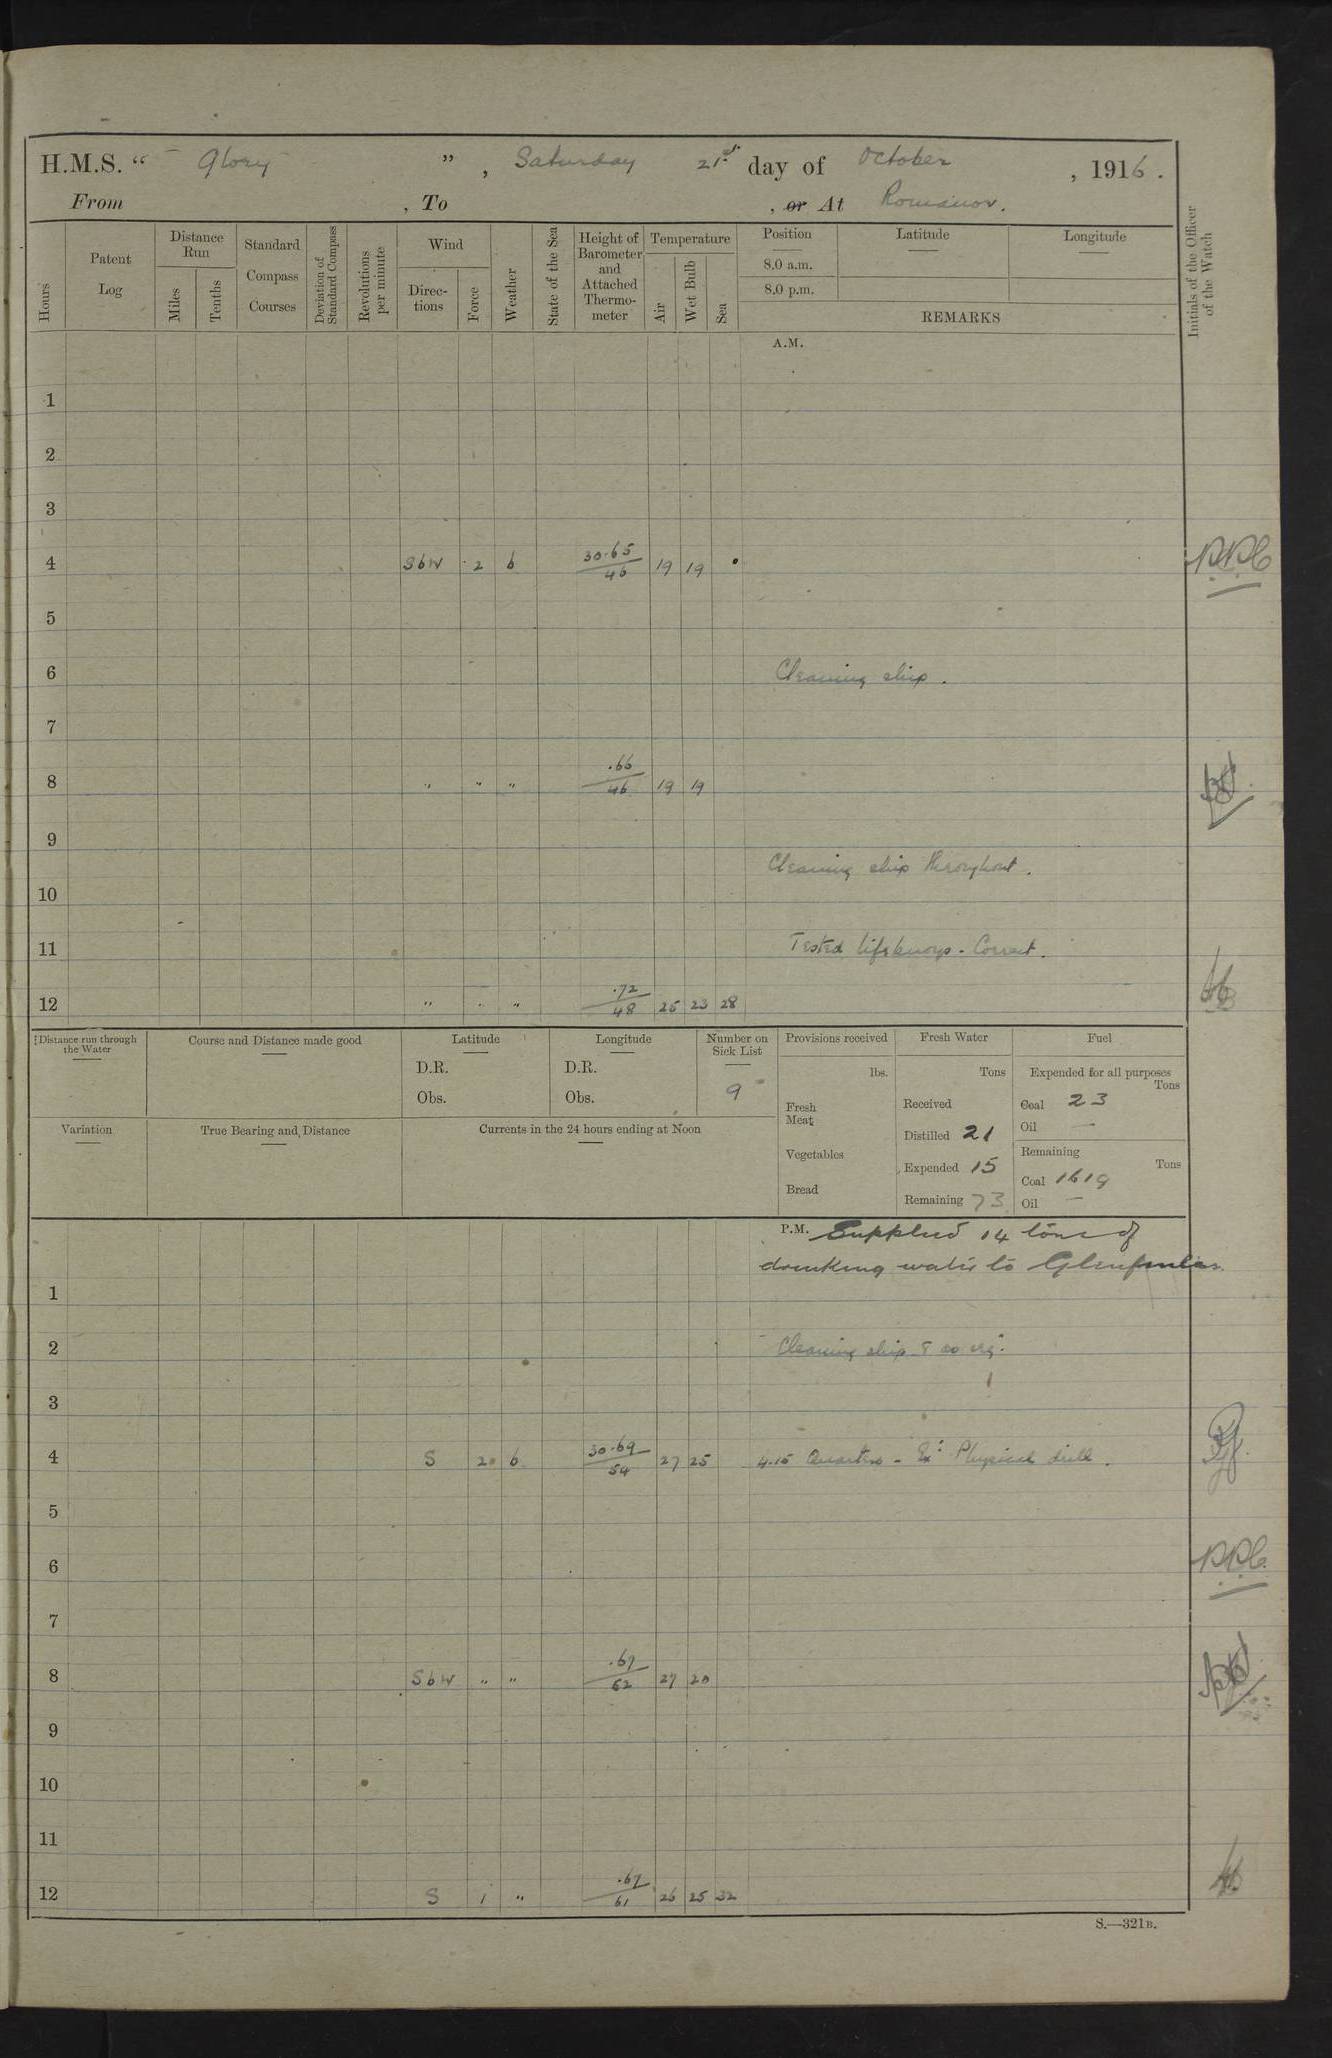 H.M.S. “ Glory ” , Saturday 21st day of October , 1916.
From , To , or At Romanov.
Hours
Patent Log
Distance Run
Miles
Tenths
Standard Compass Courses
Deviation of Standard Compass
Revolutions per minute
Wind
Directions
Force
Weather
State of the Sea
Height of Barometer and Attached Thermometer
Temperature
Air
Wet Bulb
Sea
Position
8.0 a.m.
8.0 p.m.
Latitude
Longitude
REMARKS
Initials of the Officer of the Watch
A.M.
1
2
3
4 SbW 2 b 30.65/46 19 19
5
6 Cleaning ship.
7
8 " " " .66/46 19 19
9
Cleaning ship throughout.
10
11 Tested lifebuoys - Correct.
12 " " " .72/48 25 23 28
Distance run through the Water
Course and Distance made good
Latitude
D.R.
Obs.
Longitude
D.R.
Obs.
Number on Sick List
9
Variation
True Bearing and Distance
Currents in the 24 hours ending at Noon
Provisions received
lbs.
Fresh Meat
Vegetables
Bread
Fresh Water
Tons
Received
Distilled 21
Expended 15
Remaining 73
Fuel
Expended for all purposes
Tons
Coal 23
Oil —
Remaining
Tons
Coal 1619
Oil —
P.M. Supplied 14 tons of
drinking water to Glenfinlas.
1
2 Cleaning ship &
3
4 S 2 b 30.69/54 27 25 4.15 Quarters - Ex: Physical drill.
5
6
7
8 SbW " " .67/62 27 20
9
10
11
12 S 1 " .67/61 26 25 32
S.—321B.